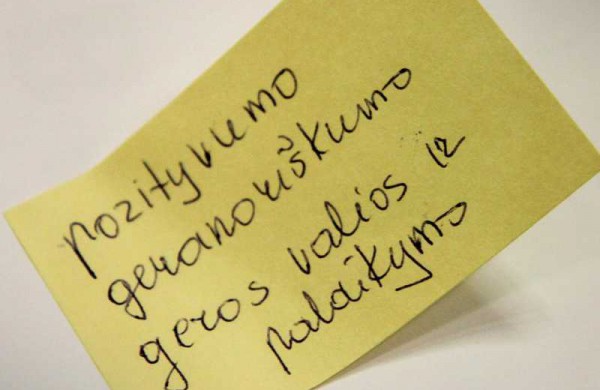 pozityvumo
geranoriškumo
geros valios ir
palaikymo